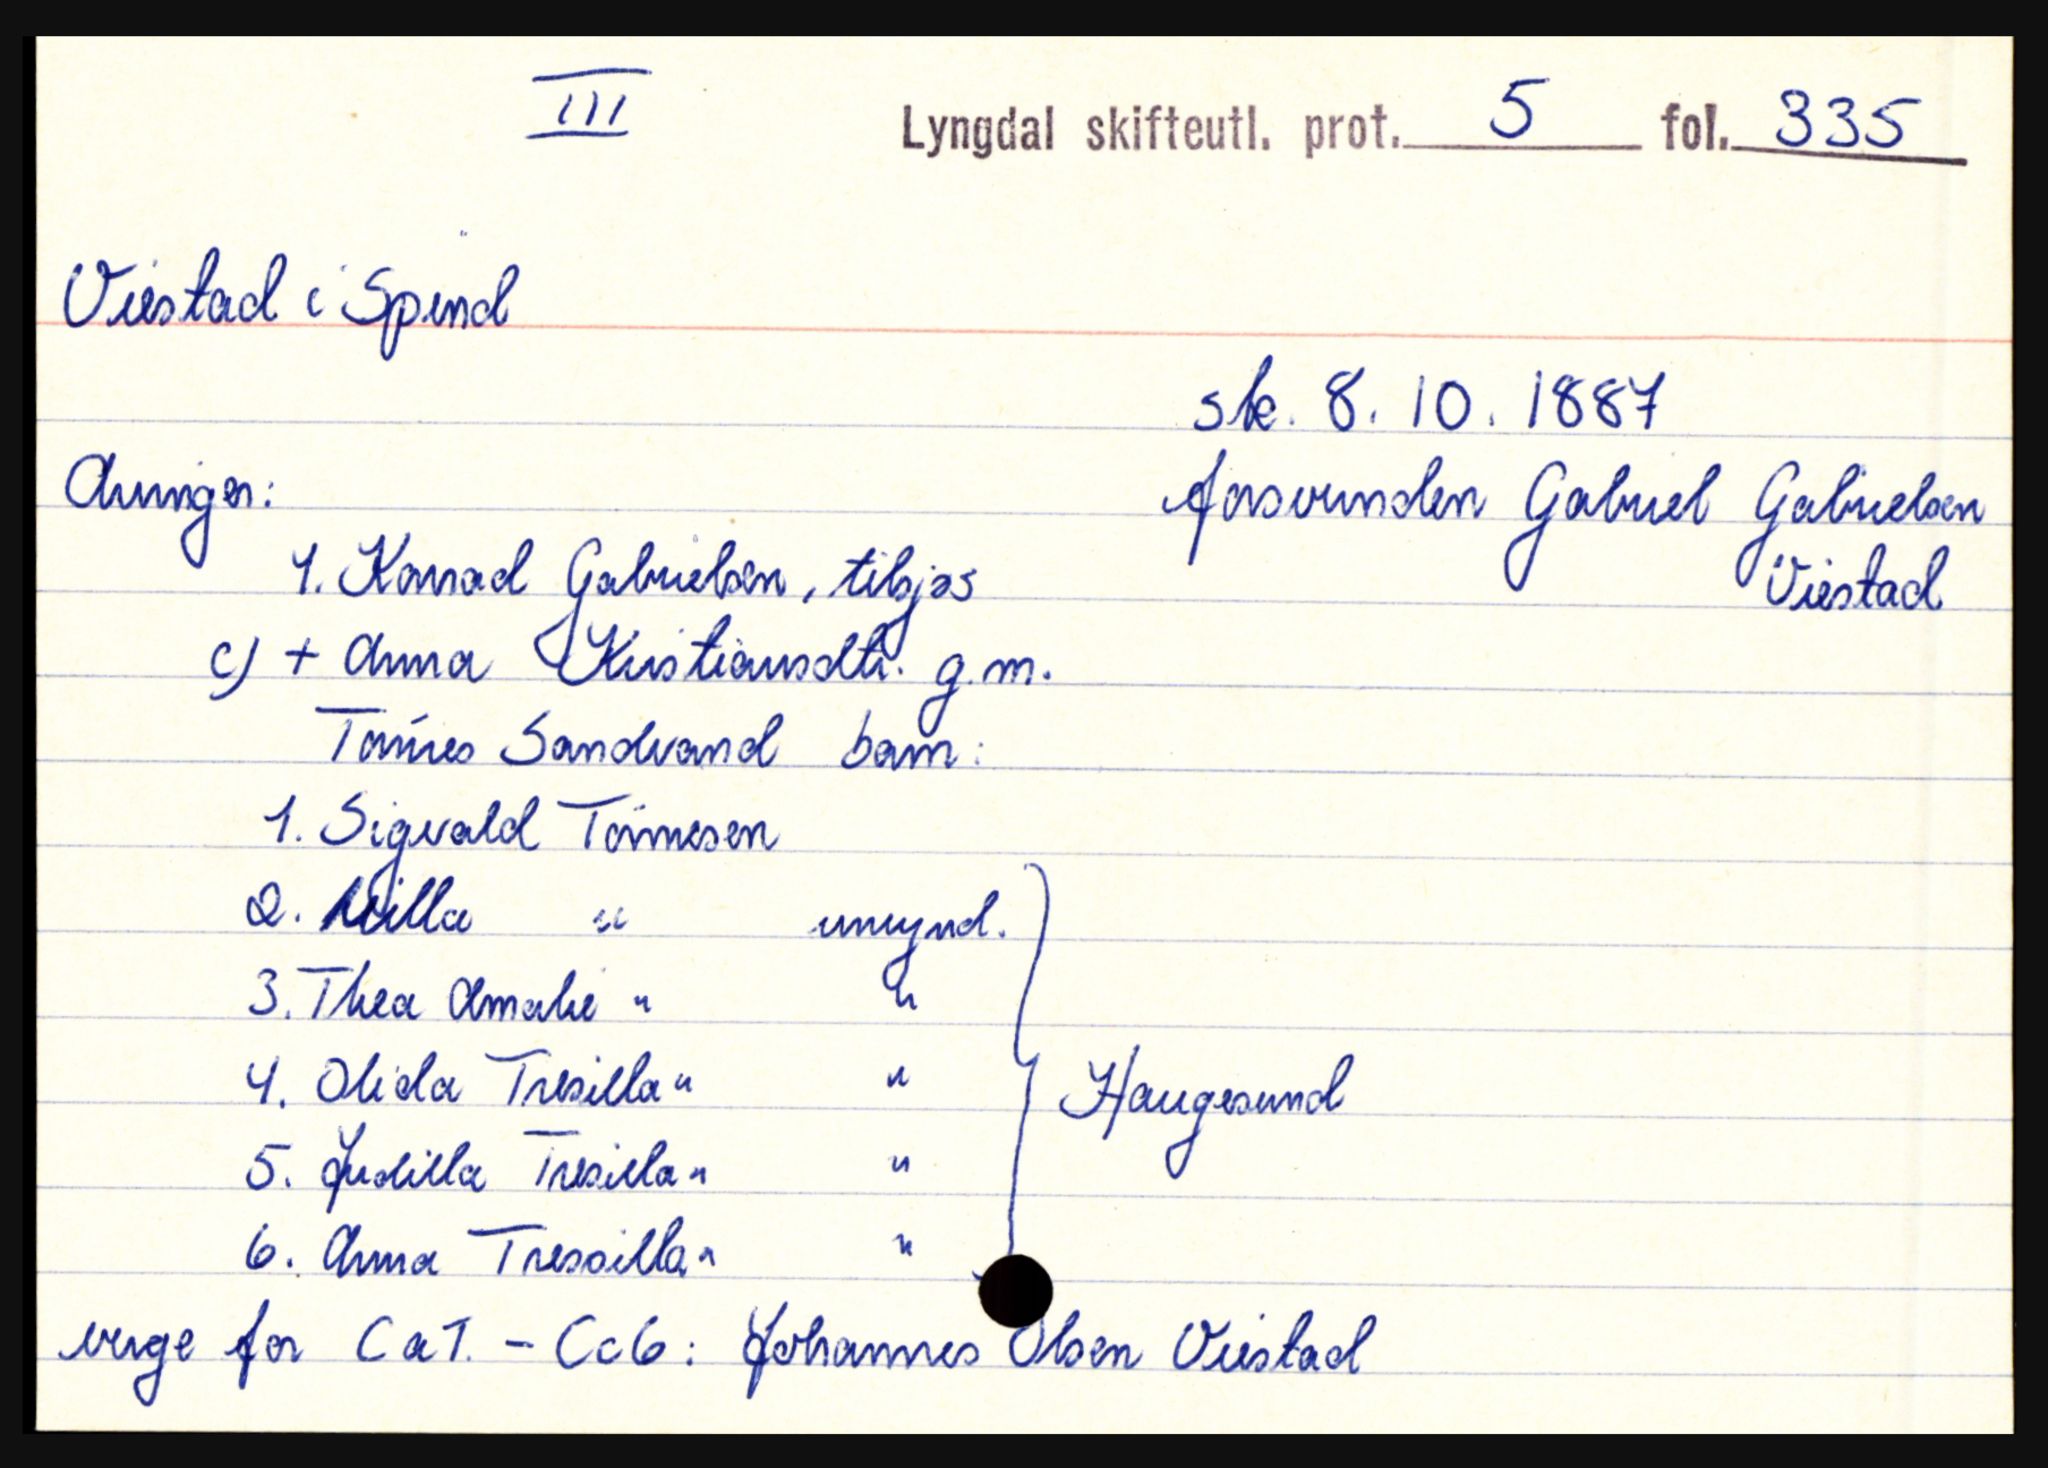 III
Lyngdal skifteutl. prot. 5 fol. 335
Viestad i Spind
sk. 8.10.1887
Arvinger:
forsvunden Gabriel Gabrielsen
Viestad
1. Konrad Gabrielsen, tilsjøs
c) + Anna Kristiansdtr. g.m.
Tønnes Sandvand barn:
1. Sigvald Tønnesen
2. Milla " umynd.
3. Thea Amalie " "
4. Olida Tresilla " "
Haugesund
5. Judilla Tresilla " "
6. Anna Tressilla " "
verge for Ca1. - Cc6: Johannes Olsen Viestad